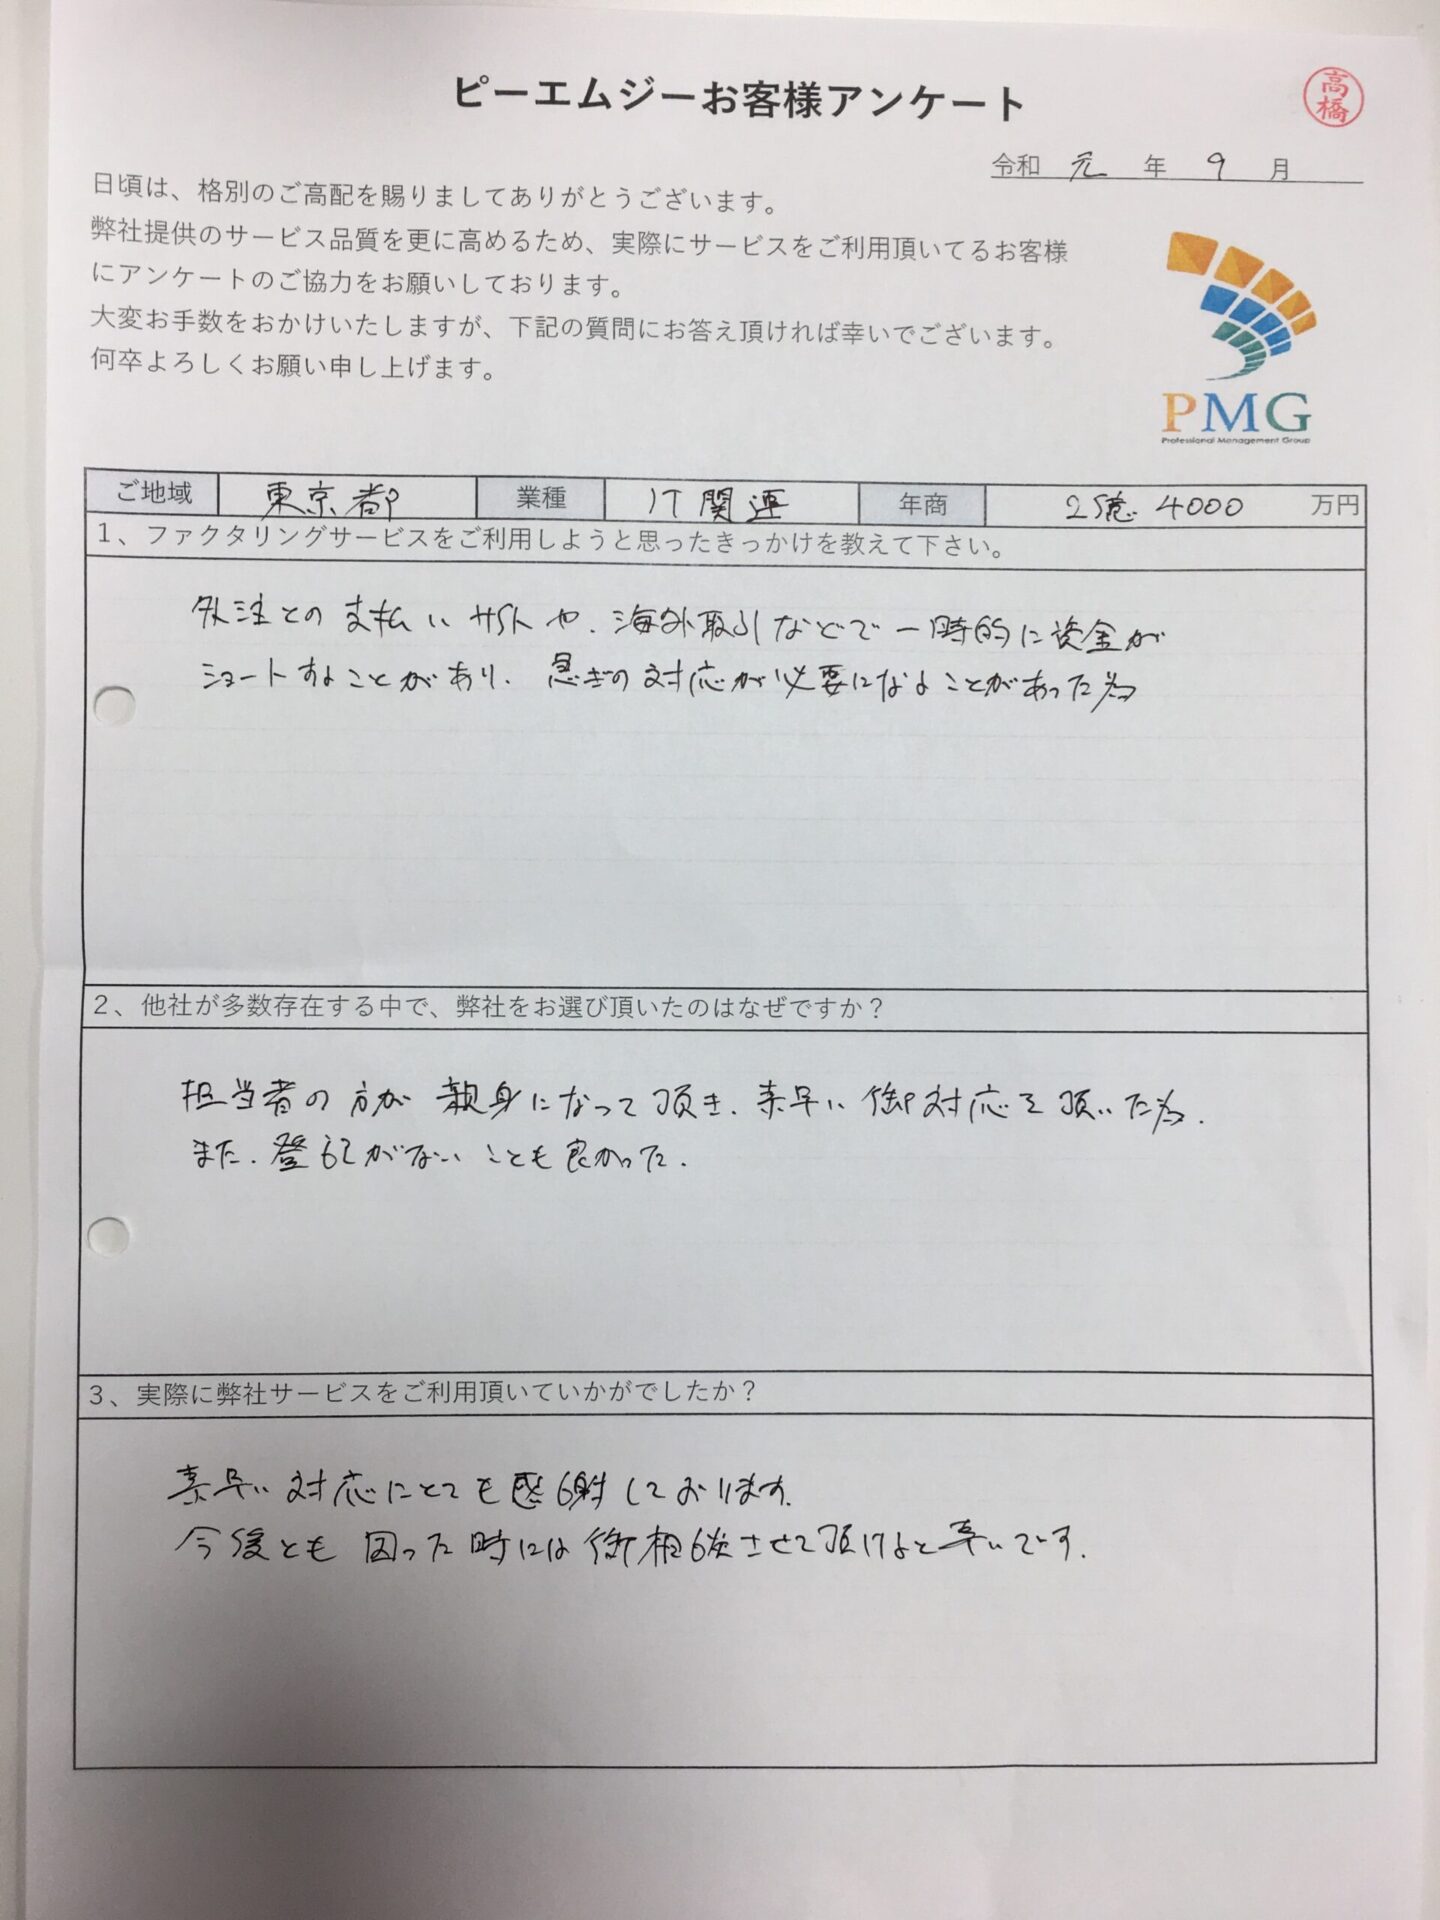 ピーエムジーお客様アンケート
高橋
令和 元 年 9 月
日頃は、格別のご高配を賜りましてありがとうございます。
弊社提供のサービス品質を更に高めるため、実際にサービスをご利用頂いてるお客様
にアンケートのご協力をお願いしております。
大変お手数をおかけいたしますが、下記の質問にお答え頂ければ幸いでございます。
何卒よろしくお願い申し上げます。
PMG
Professional Management Group
ご地域 東京都 業種 IT関連 年商 2億 4000 万円
1、ファクタリングサービスをご利用しようと思ったきっかけを教えて下さい。
外注との支払いサイトや、海外取引などで一時的に資金が
ショートすることがあり、急ぎの対応が必要になることがあった為
2、他社が多数存在する中で、弊社をお選び頂いたのはなぜですか？
担当者の方が親身になって頂き、素早い御対応を頂いた為。
また、登記がないことも良かった。
3、実際に弊社サービスをご利用頂いていかがでしたか？
素早い対応にとても感謝しております。
今後とも困った時には御相談させて頂けると幸いです。